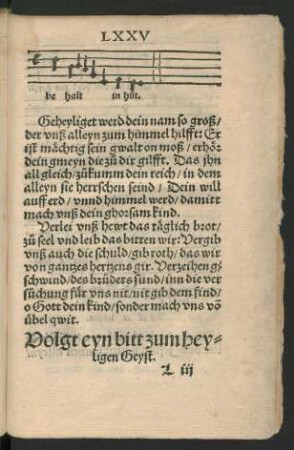 LXXV
be halt in hůt.
Geheyliget werd dein nam so groß/
der vnß alleyn zum himmel hilfft: Er
ist mächtig sein gwalt on moß/ erhöz
dein gmeyn die zů dir gilfft. Das jhn
all gleich/ zůkumm dein reich/ in dem
alleyn sie herrschen seind/ Dein will
auff erd/ vnnd himmel werd/ damitt
mach vnß dein ghorsam kind.
Verlei vnß hewt das täglich brot/
zů seel vnd leib das bitten wir: Vergib
vnß auch die schuld/ gib roth/ das wir
von gantzes hertzens gir. Verzeihen g-
schwind/ des brůders sund/ inn die ver
sůchung für vns nit/ nit gib dem feind/
o Gott dein kind/ sonder mach vns vō
übel qwit.
Volgt eyn bitt zum hey-
ligen Geyst.
L iij